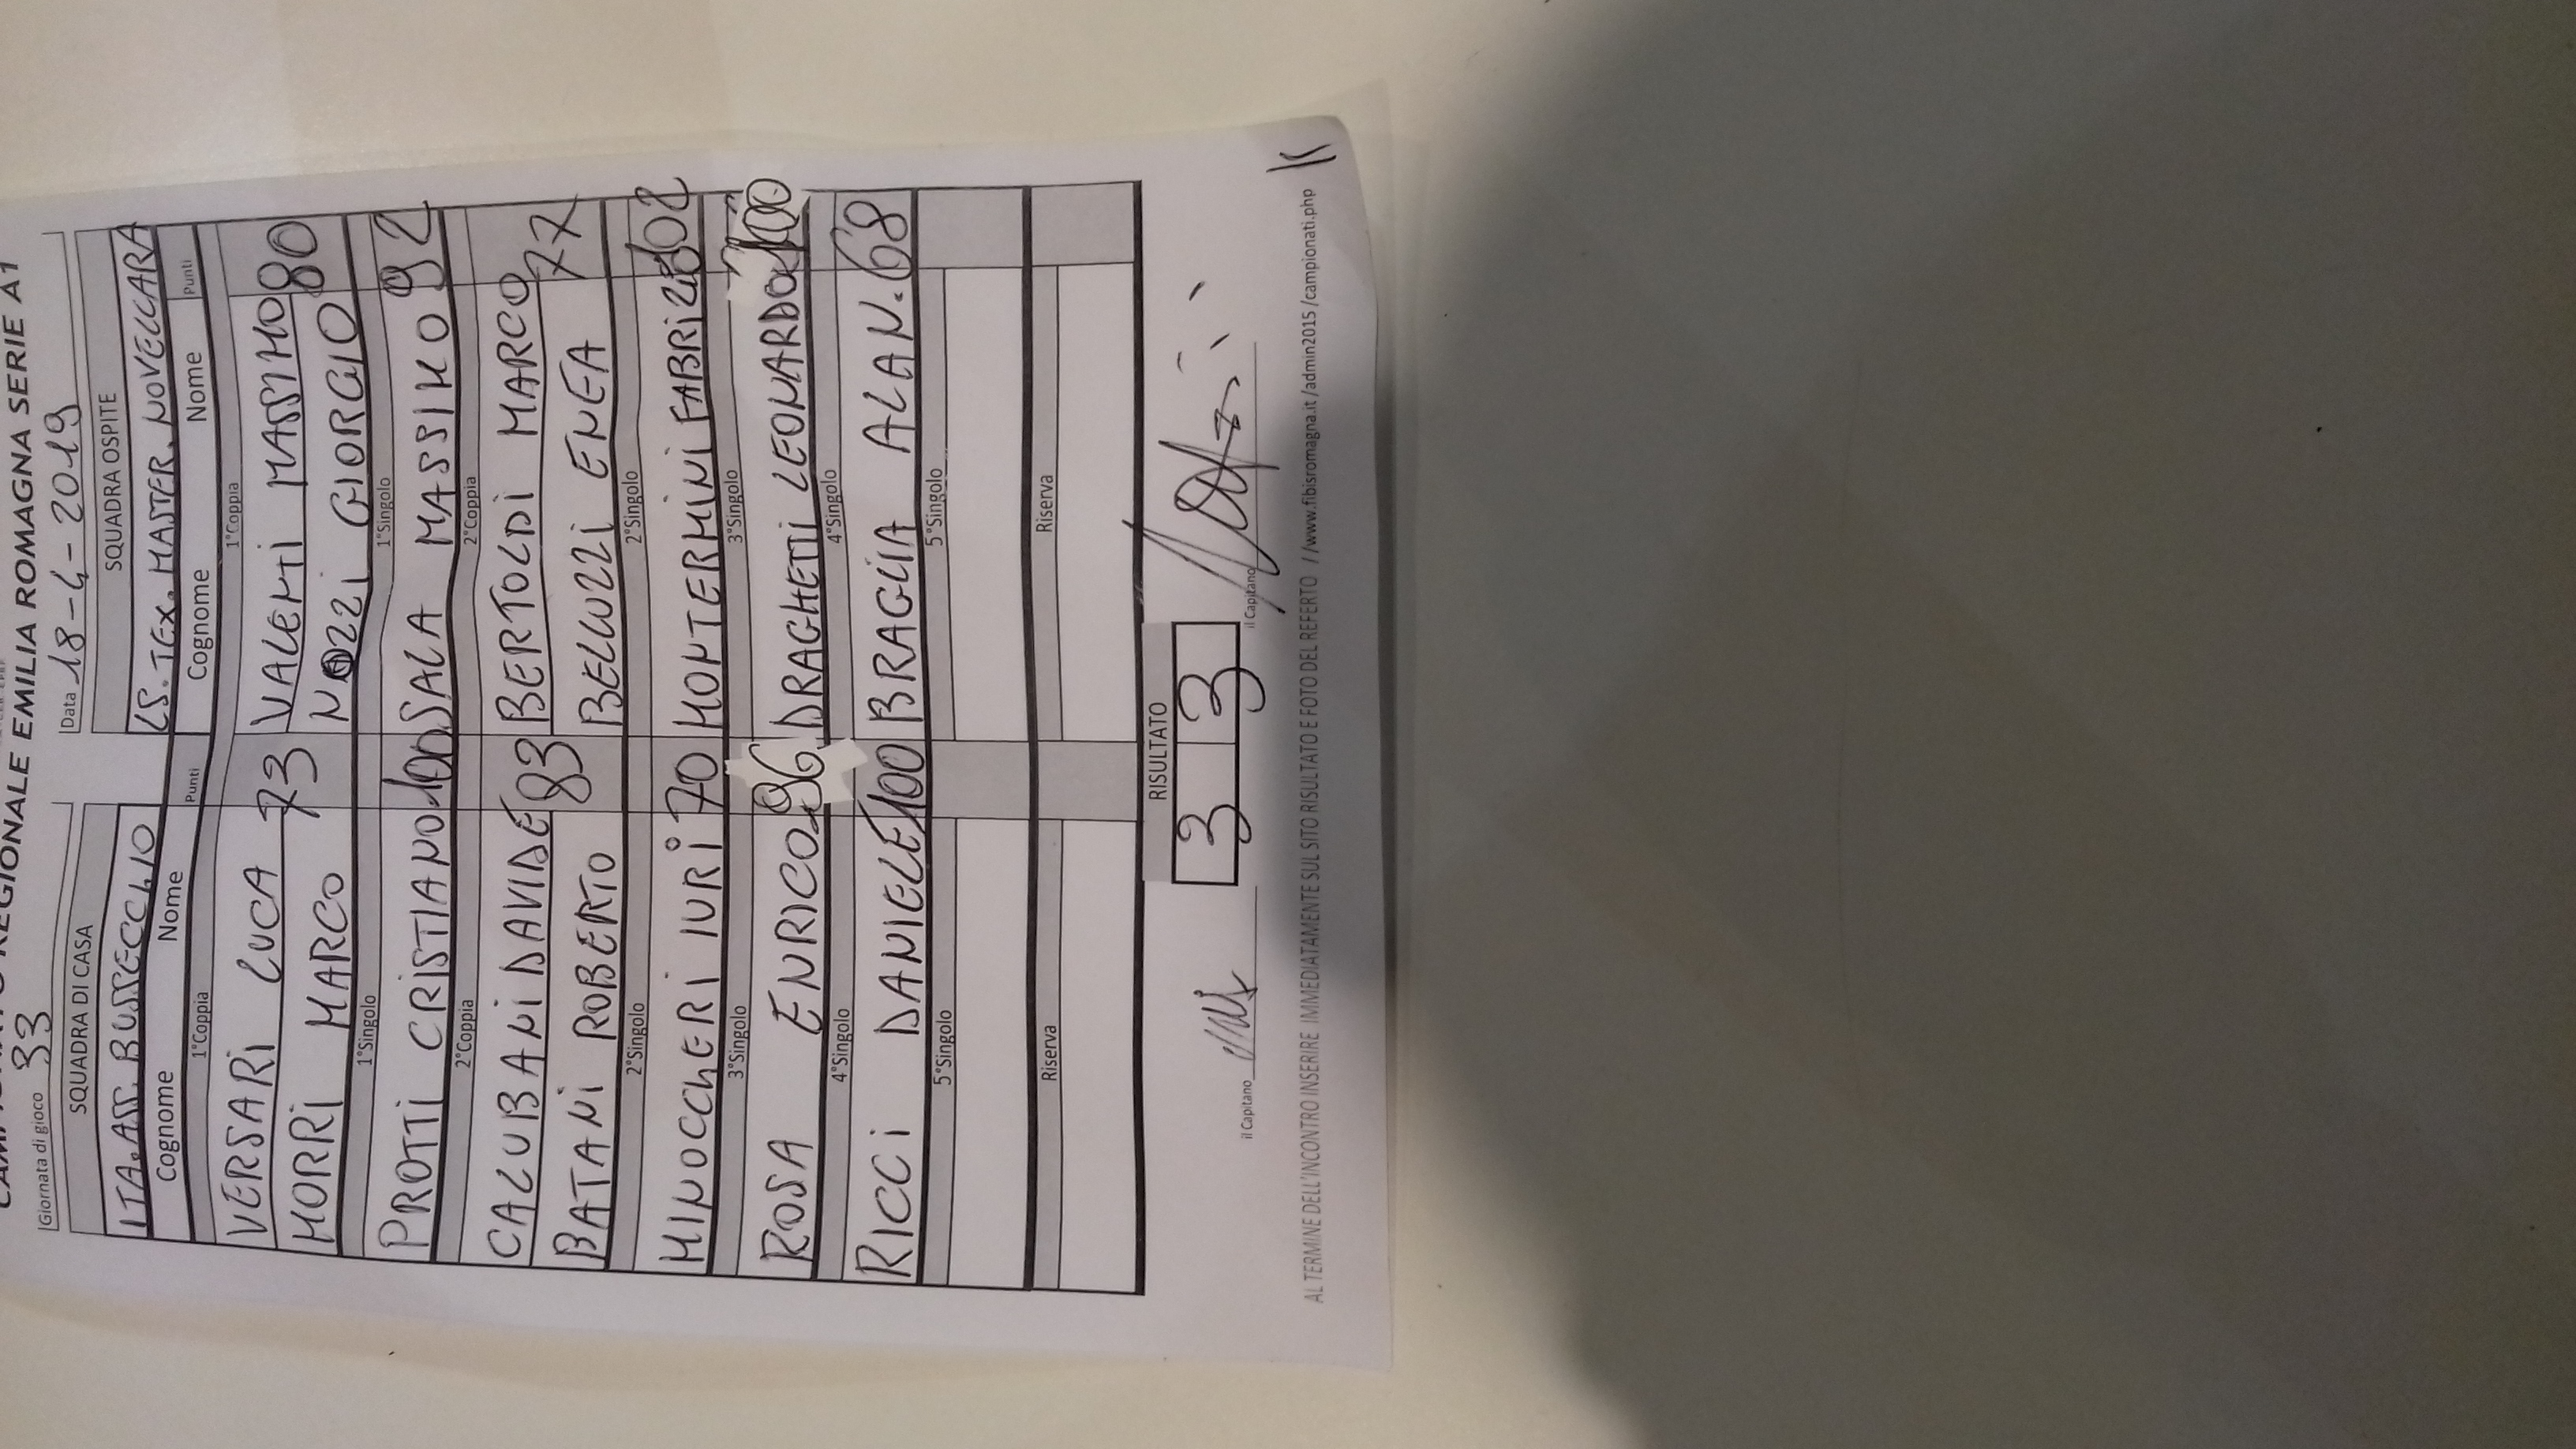 REGIONALE EMILIA ROMAGNA SERIE A1
Giornata di gioco 33 Data 18-4-2019
SQUADRA DI CASA SQUADRA OSPITE
ITA.ASS. BUSSECCHIO LS. TEX. MASTER. NOVELLARA
Cognome Nome Punti Cognome Nome Punti
1°Coppia 1°Coppia
VERSARI LUCA 73 VALENTI MASSIMO 80
MORRI MARCO NOZZI GIORGIO
1°Singolo 1°Singolo
PROTTI CRISTIANO 100 SALA MASSIMO 92
2°Coppia 2°Coppia
CALUBANI DAVIDE 83 BERTOLDI MARCO 77
BATANI ROBERTO BELLUZZI ENEA
2°Singolo 2°Singolo
MINOCCHERI IURI 70 MONTERMINI FABRIZIO 102
3°Singolo 3°Singolo
ROSA ENRICO 96 DRAGHETTI LEONARDO 100
4°Singolo 4°Singolo
RICCI DANIELE 100 BRAGLIA ALAN 68
5°Singolo 5°Singolo
Riserva Riserva
RISULTATO
3 3
il Capitano il Capitano
AL TERMINE DELL'INCONTRO INSERIRE IMMEDIATAMENTE SUL SITO RISULTATO E FOTO DEL REFERTO //www.fibisromagna.it /admin2015 /campionati.php